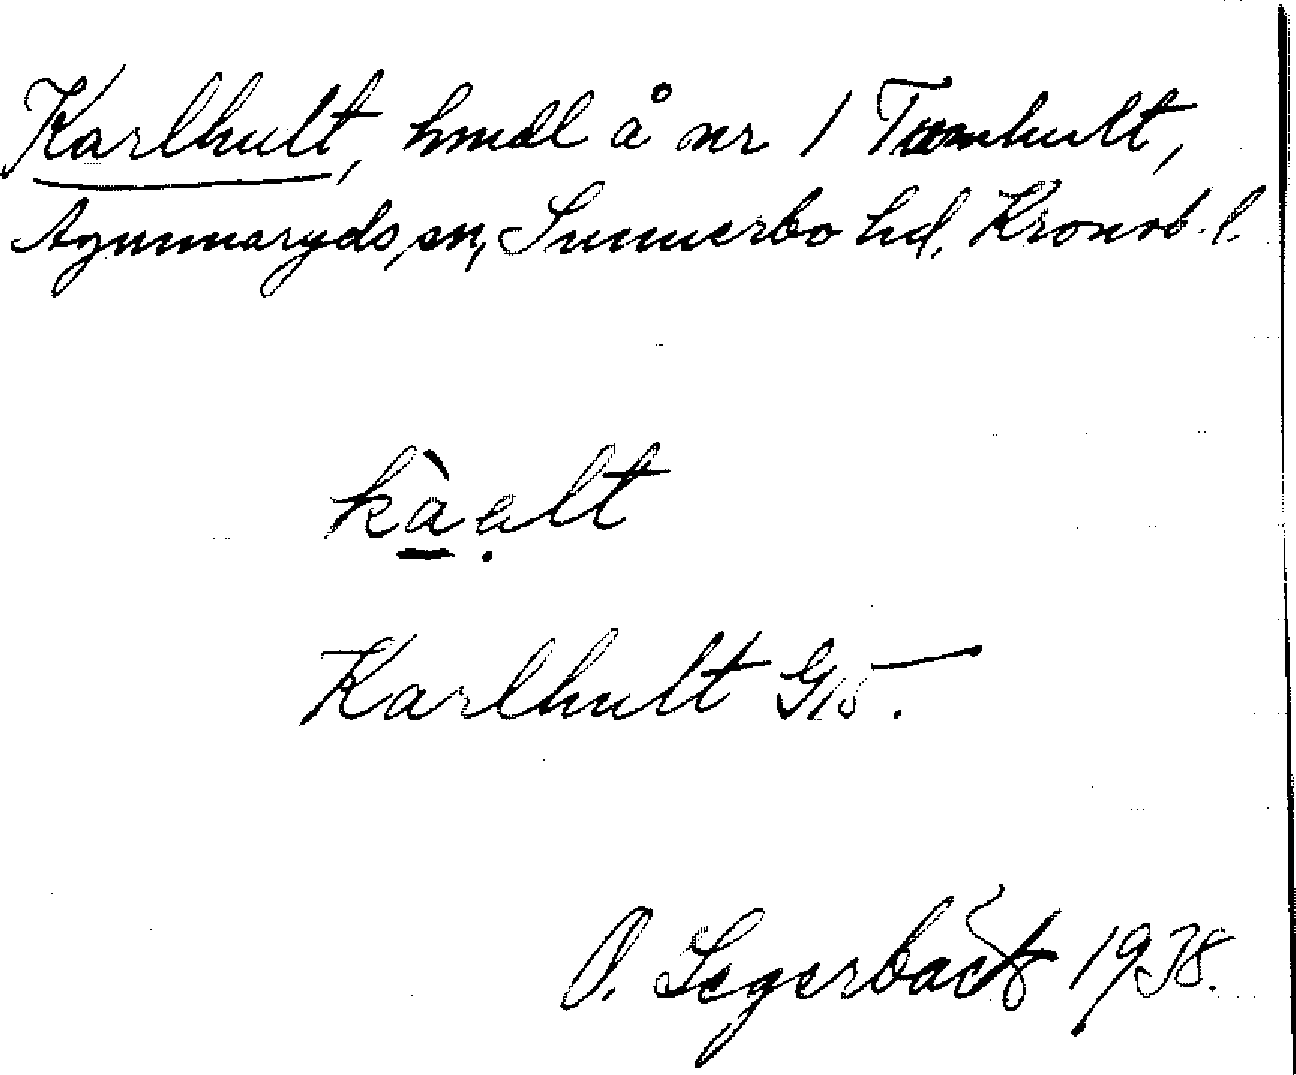 Karlhult, hmdl å nr 1 Tomhult,
Agunnaryds sn, Sunnerbo hd, Kronob. l.
kàalt
Karlhult G15.
O. Segerbäck 1938.